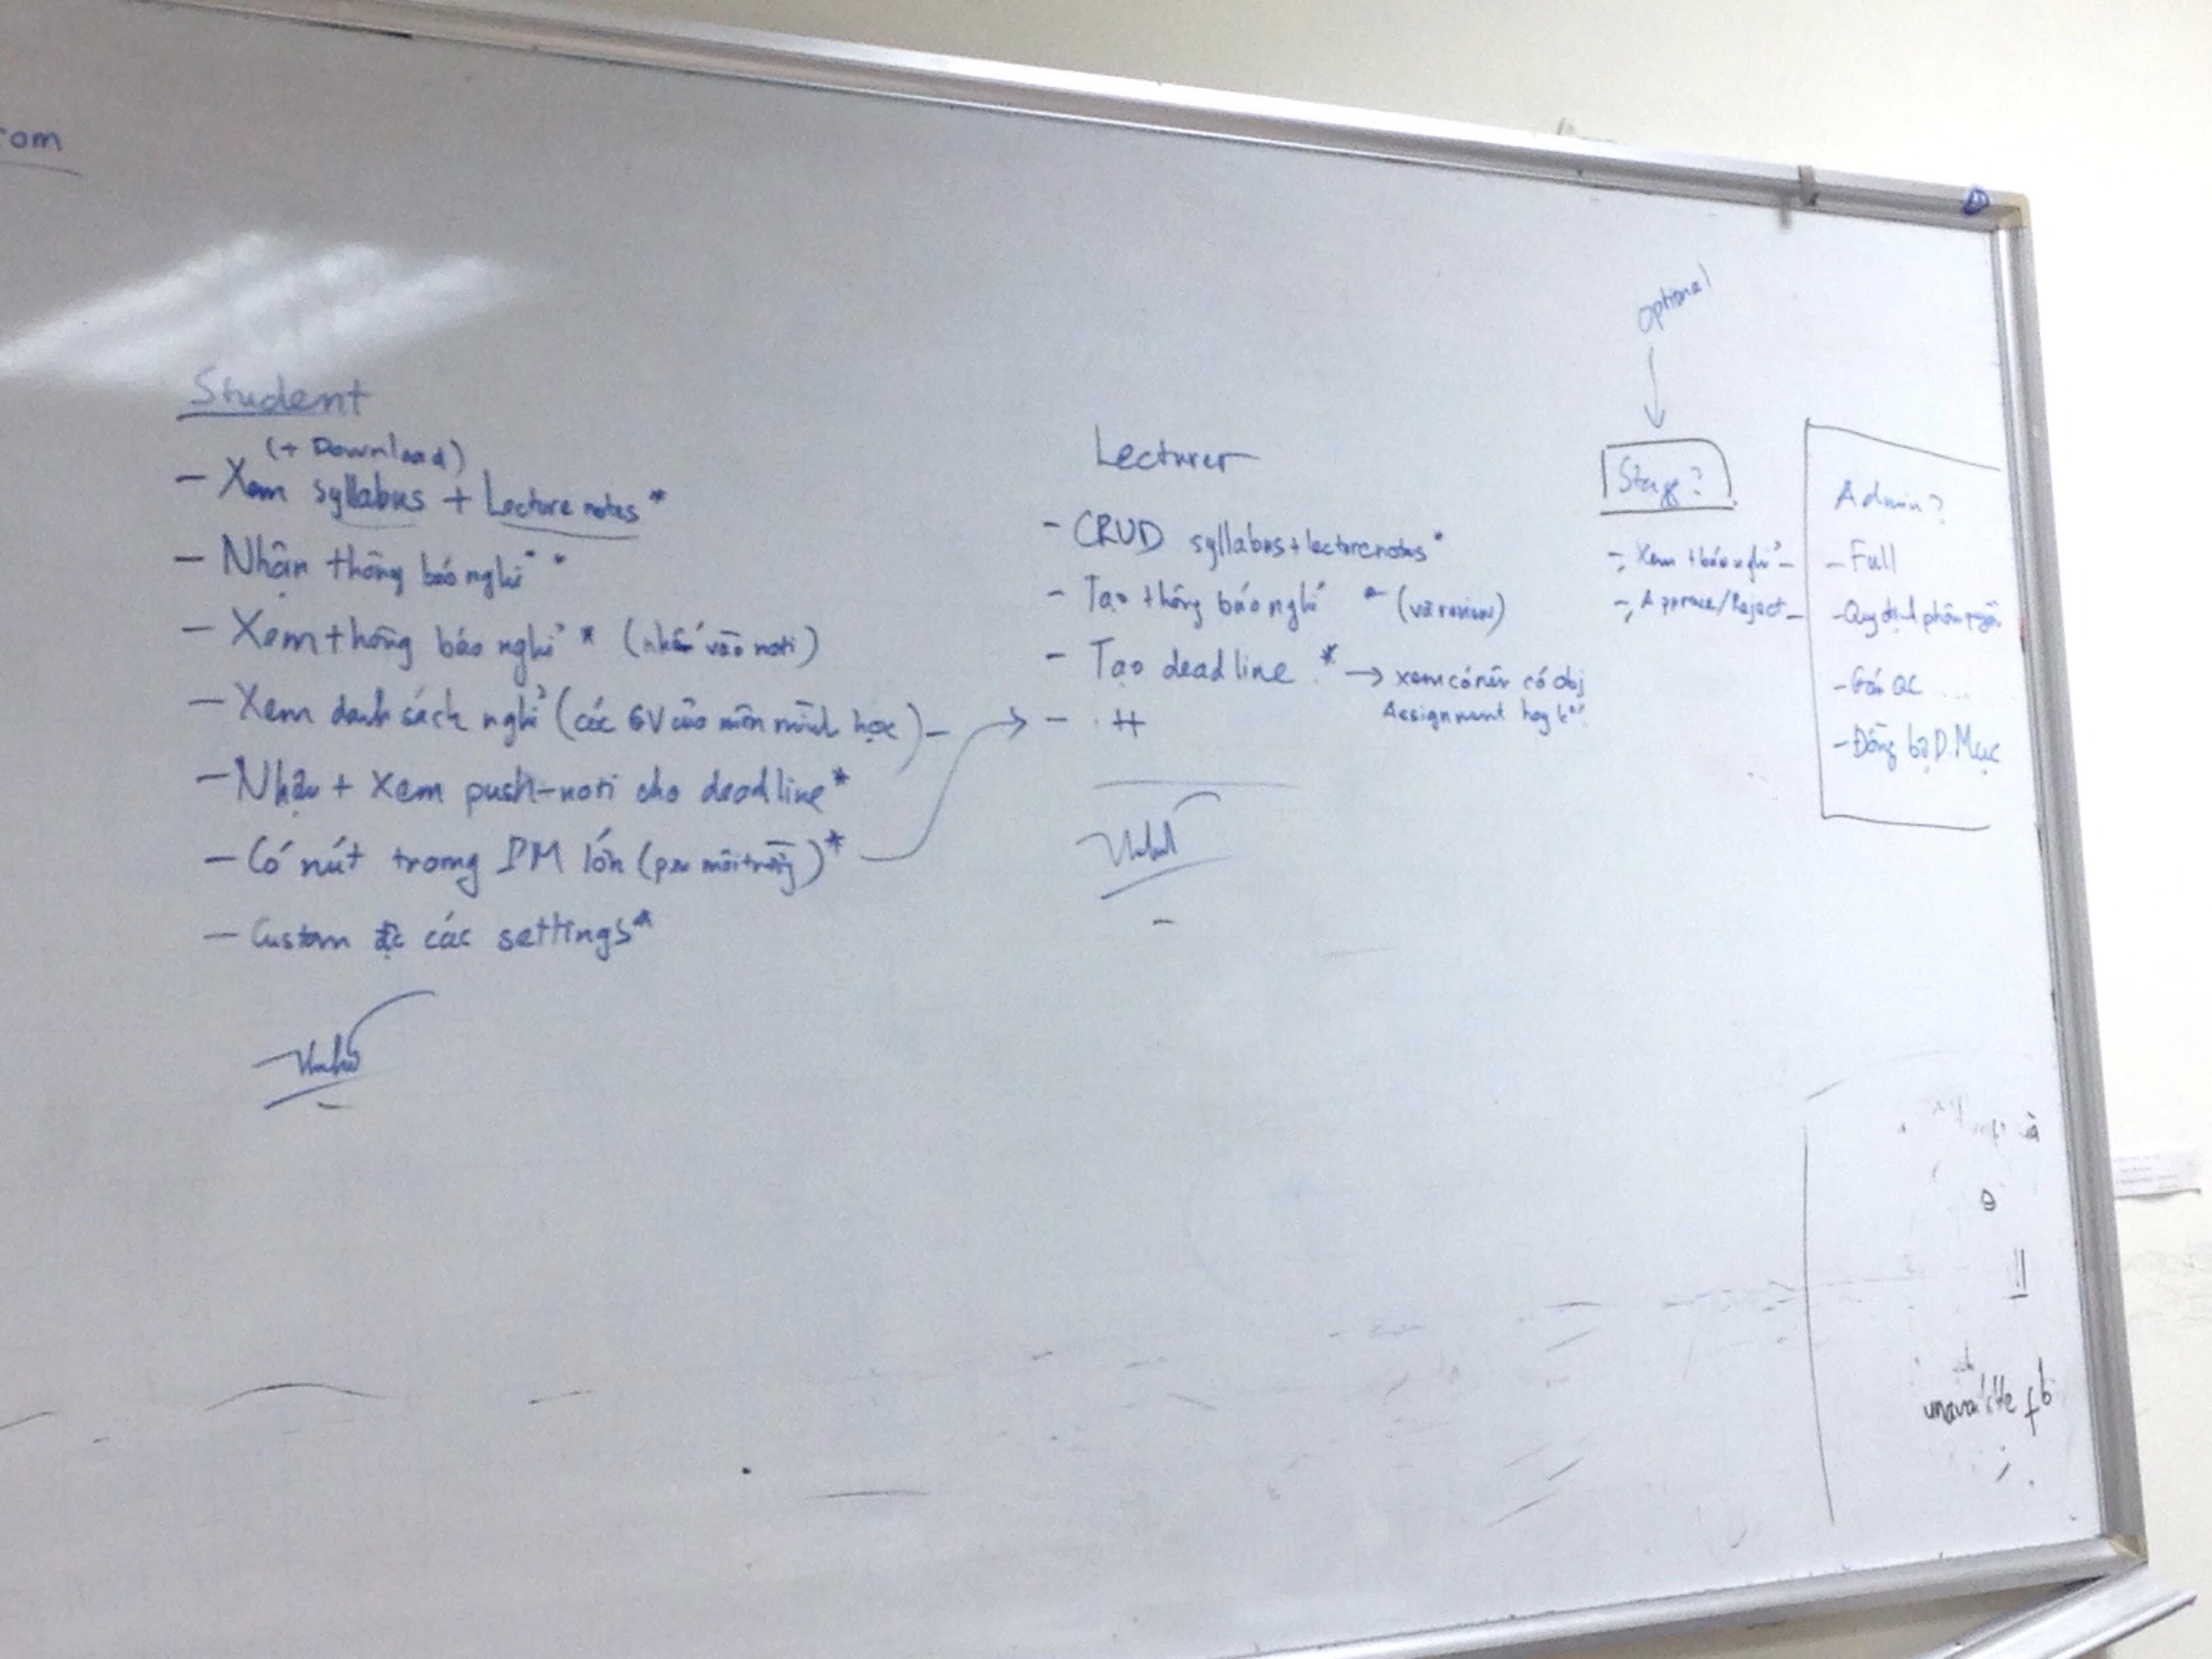 om
Student
(+ Download)
- Xem syllabus + Lecture notes *
- Nhận thông báo nghỉ *
- Xem thông báo nghỉ * (nhấn vào noti)
- Xem danh sách nghỉ (các GV của môn mình học) -
- Nhận + xem push-noti cho deadline *
- Có nút trong DM lớn *
- Custom đc các settings *
Lecturer
- CRUD syllabus + lecture notes *
- Tạo thông báo nghỉ * (và review)
- Tạo deadline * → xem có nên có obj
Assignment hay k°
- #
optional
- Xem tbáo nghỉ -
- Approve/Reject -
Admin?
- Full
- Quy định phân quyền
- QC
- Đồng bộ D.Mục
fb